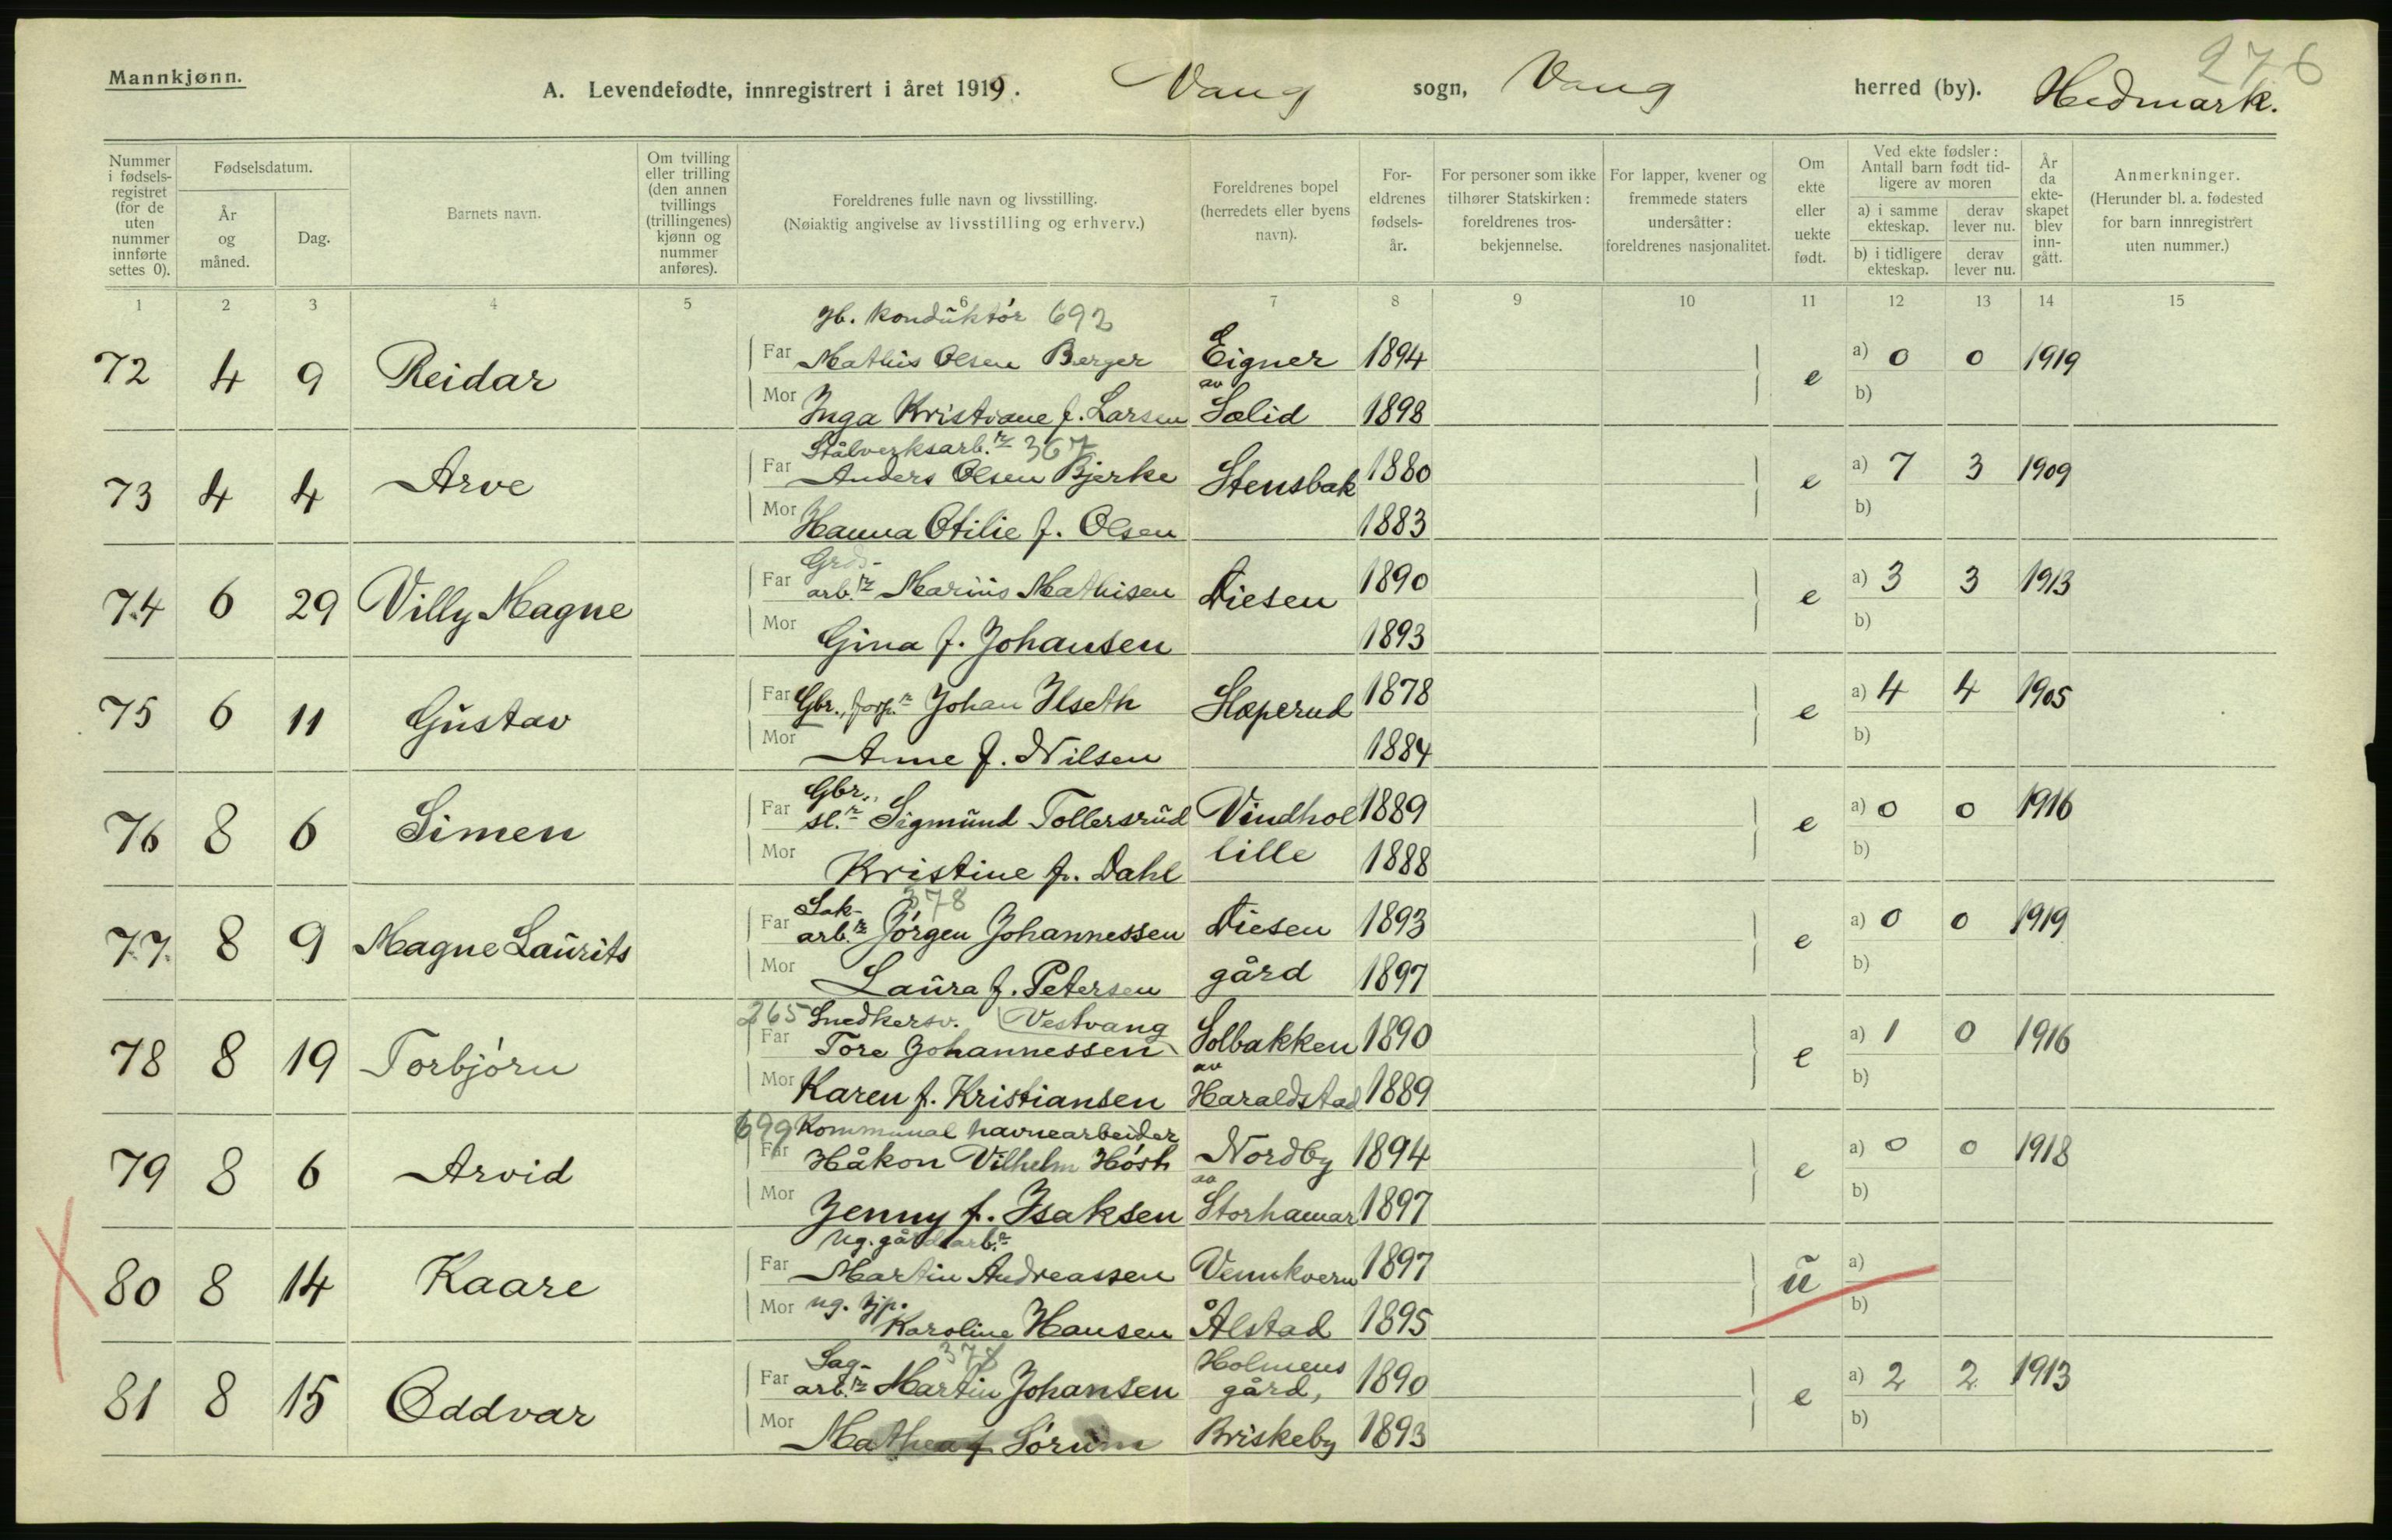 276
Mannkjønn.
A. Levendefødte, innregistrert i året 1919. Vang sogn, Vang herred (by). Hedmark.
Nummer i fødsels-registret (for de uten nummer innførte settes 0).
Fødselsdatum.
År og måned.
Dag.
Barnets navn.
Om tvilling eller trilling (den annen tvillings (trillingenes) kjønn og nummer anføres).
Foreldrenes fulle navn og livsstilling.
(Nøiaktig angivelse av livsstilling og erhverv.)
Foreldrenes bopel (herredets eller byens navn).
For-eldrenes fødsels-år.
For personer som ikke tilhører Statskirken: foreldrenes tros-bekjennelse.
For lapper, kvener og fremmede staters undersåtter: foreldrenes nasjonalitet.
Om ekte eller uekte født.
Ved ekte fødsler: Antall barn født tid-ligere av moren
a) i samme ekteskap.
derav lever nu.
b) i tidligere ekteskap.
derav lever nu.
År da ekte-skapet blev inn-gått.
Anmerkninger.
(Herunder bl. a. fødested for barn innregistrert uten nummer.)
1 2 3 4 5 6 7 8 9 10 11 12 13 14 15
Jb. konduktör 692
72 4 9 Reidar Far Mathis Olsen Berger Eigner 1894 e a) 0 0 1919
av
Mor Inga Kristiane f. Larsen Solid 1898 b)
Stålverksarb.r 367
73 4 4 Arve Far Anders Olsen Bjerke Stensbak 1880 e a) 7 3 1909
Mor Hanna Otilie f. Olsen 1883 b)
Grds-
74 6 29 Villy Magne Far arb.r Marius Mathisen Diesen 1890 e a) 3 3 1913
Mor Gina f. Johansen 1893 b)
75 6 11 Gustav Far Gbr., forp.r Johan Ilseth Slæperud 1878 e a) 4 4 1905
Mor Anne f. Nilsen 1884 b)
Gbr.,
76 8 6 Simen Far sl.r Sigmund Tollersrud Vindhol 1889 e a) 0 0 1916
Mor Kristine f. Dahl lille 1888 b)
Sak- 378
77 8 9 Magne Laurits Far arb.r Jörgen Johannessen Diesen 1893 e a) 0 0 1919
Mor Laura f. Petersen gård 1897 b)
265 Snedkersv. Vestvang
78 8 19 Torbjörn Far Tore Johannessen Solbakken 1890 e a) 1 0 1916
av
Mor Karen f. Kristiansen Haraldstad 1889 b)
699 Kommunal havnearbeider
79 8 6 Arvid Far Håkon Vilhelm Hösh Nordby 1894 e a) 0 0 1918
av
Mor Jenny f. Isaksen Storhamar 1897 b)
Ug. gårdsarb.r
80 8 14 Kaare Far Martin Andreassen Vennkvern 1897 u a)
Mor ug. tjp. Karoline Hansen Ålstad 1895 b)
Sag- 378 Holmens
81 8 15 Oddvar Far arb.r Martin Johansen gård, 1890 e a) 2 2 1913
Mor Mathea f Sörum Briskeby 1893 b)